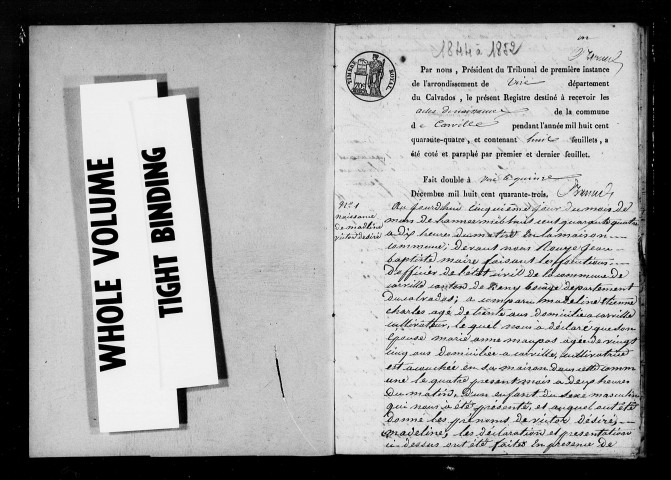 WHOLE VOLUME
TIGHT BINDING
1844 à 1852
TIMBRE ROYAL
Par nous, Président du Tribunal de première instance
de l'arrondissement de Vire département
du Calvados, le présent Registre destiné à recevoir les
actes de naissance de la commune
d e Carville pendant l'année mil huit cent
quarante-quatre, et contenant huit feuillets, a
été coté et paraphé par premier et dernier feuillet.
Fait double à Vire le quinze
Décembre mil huit cent quarante-trois.
N° 1
naissance
de madeline
victor désiré
Au jourdhui cinquième jour du mois de
mars de l'année mil huit cent quarante quatre
a dix heures du matin en la maison
commune, devant nous Jean
baptiste maire faisant les fonctions
D'officier de l'état civil de la commune de
carville canton de Beny bocage département
du calvados, a comparu madeline etienne
charles agé de trente ans domicilié a carville
cultivateur, le quel nous a déclaré que son
épouse marie anne maupas agée de vingt
cinq ans domiciliée a carville, cultivatrice
est accouchée en sa maison dans cette comm
une le quatre présent mois a deux heures
du matin, d'un enfant du sexe masculin
qui nous a été présenté, et auquel ont été
donné les prénoms de victor désiré,
madeline, les déclaration et présentation
ci-dessus ont été faites en présence de